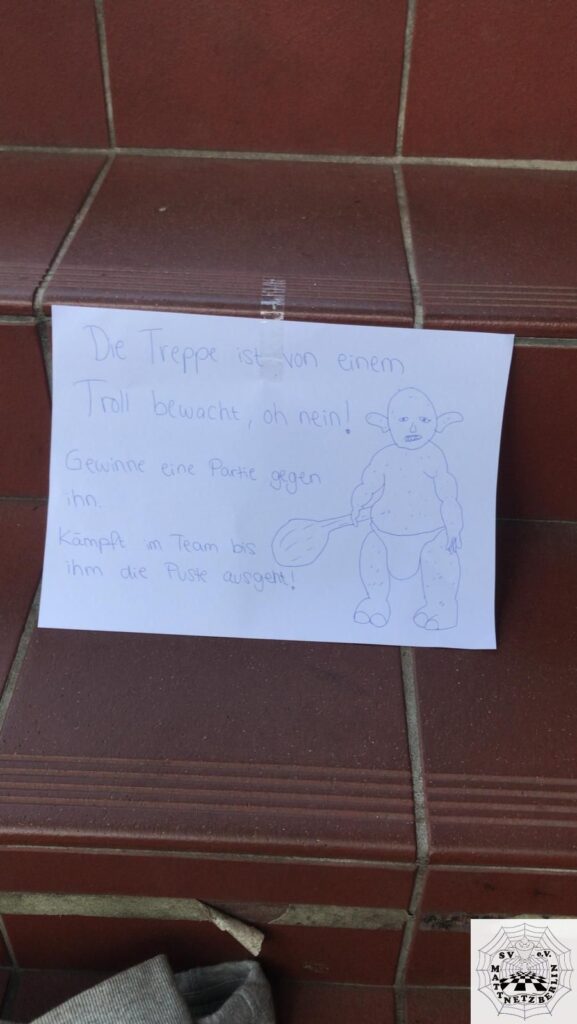 Die Treppe ist von einem
Troll bewacht, oh nein!
Gewinne eine Partie gegen
ihn.
Kämpft im Team bis
ihm die Puste ausgeht!
SV e.V.
MATTNETZ BERLIN